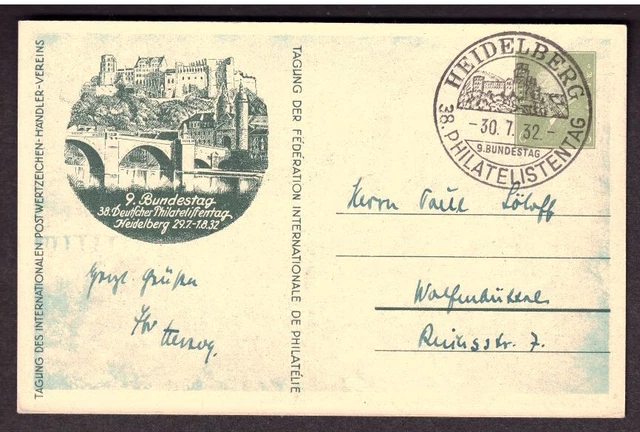 TAGUNG DES INTERNATIONALEN POSTWERTZEICHEN-HÄNDLER-VEREINS
9. Bundestag
38. Deutscher Philatelistentag
Heidelberg 29.7.-1.8.32
Herzl. Grüßen
Ihr Herzog.
TAGUNG DER FÉDÉRATION INTERNATIONALE DE PHILATÉLIE
HEIDELBERG
-30.7.32-
9. BUNDESTAG
38. PHILATELISTENTAG
Herrn Paul
Wolfenbüttel
str. 7.